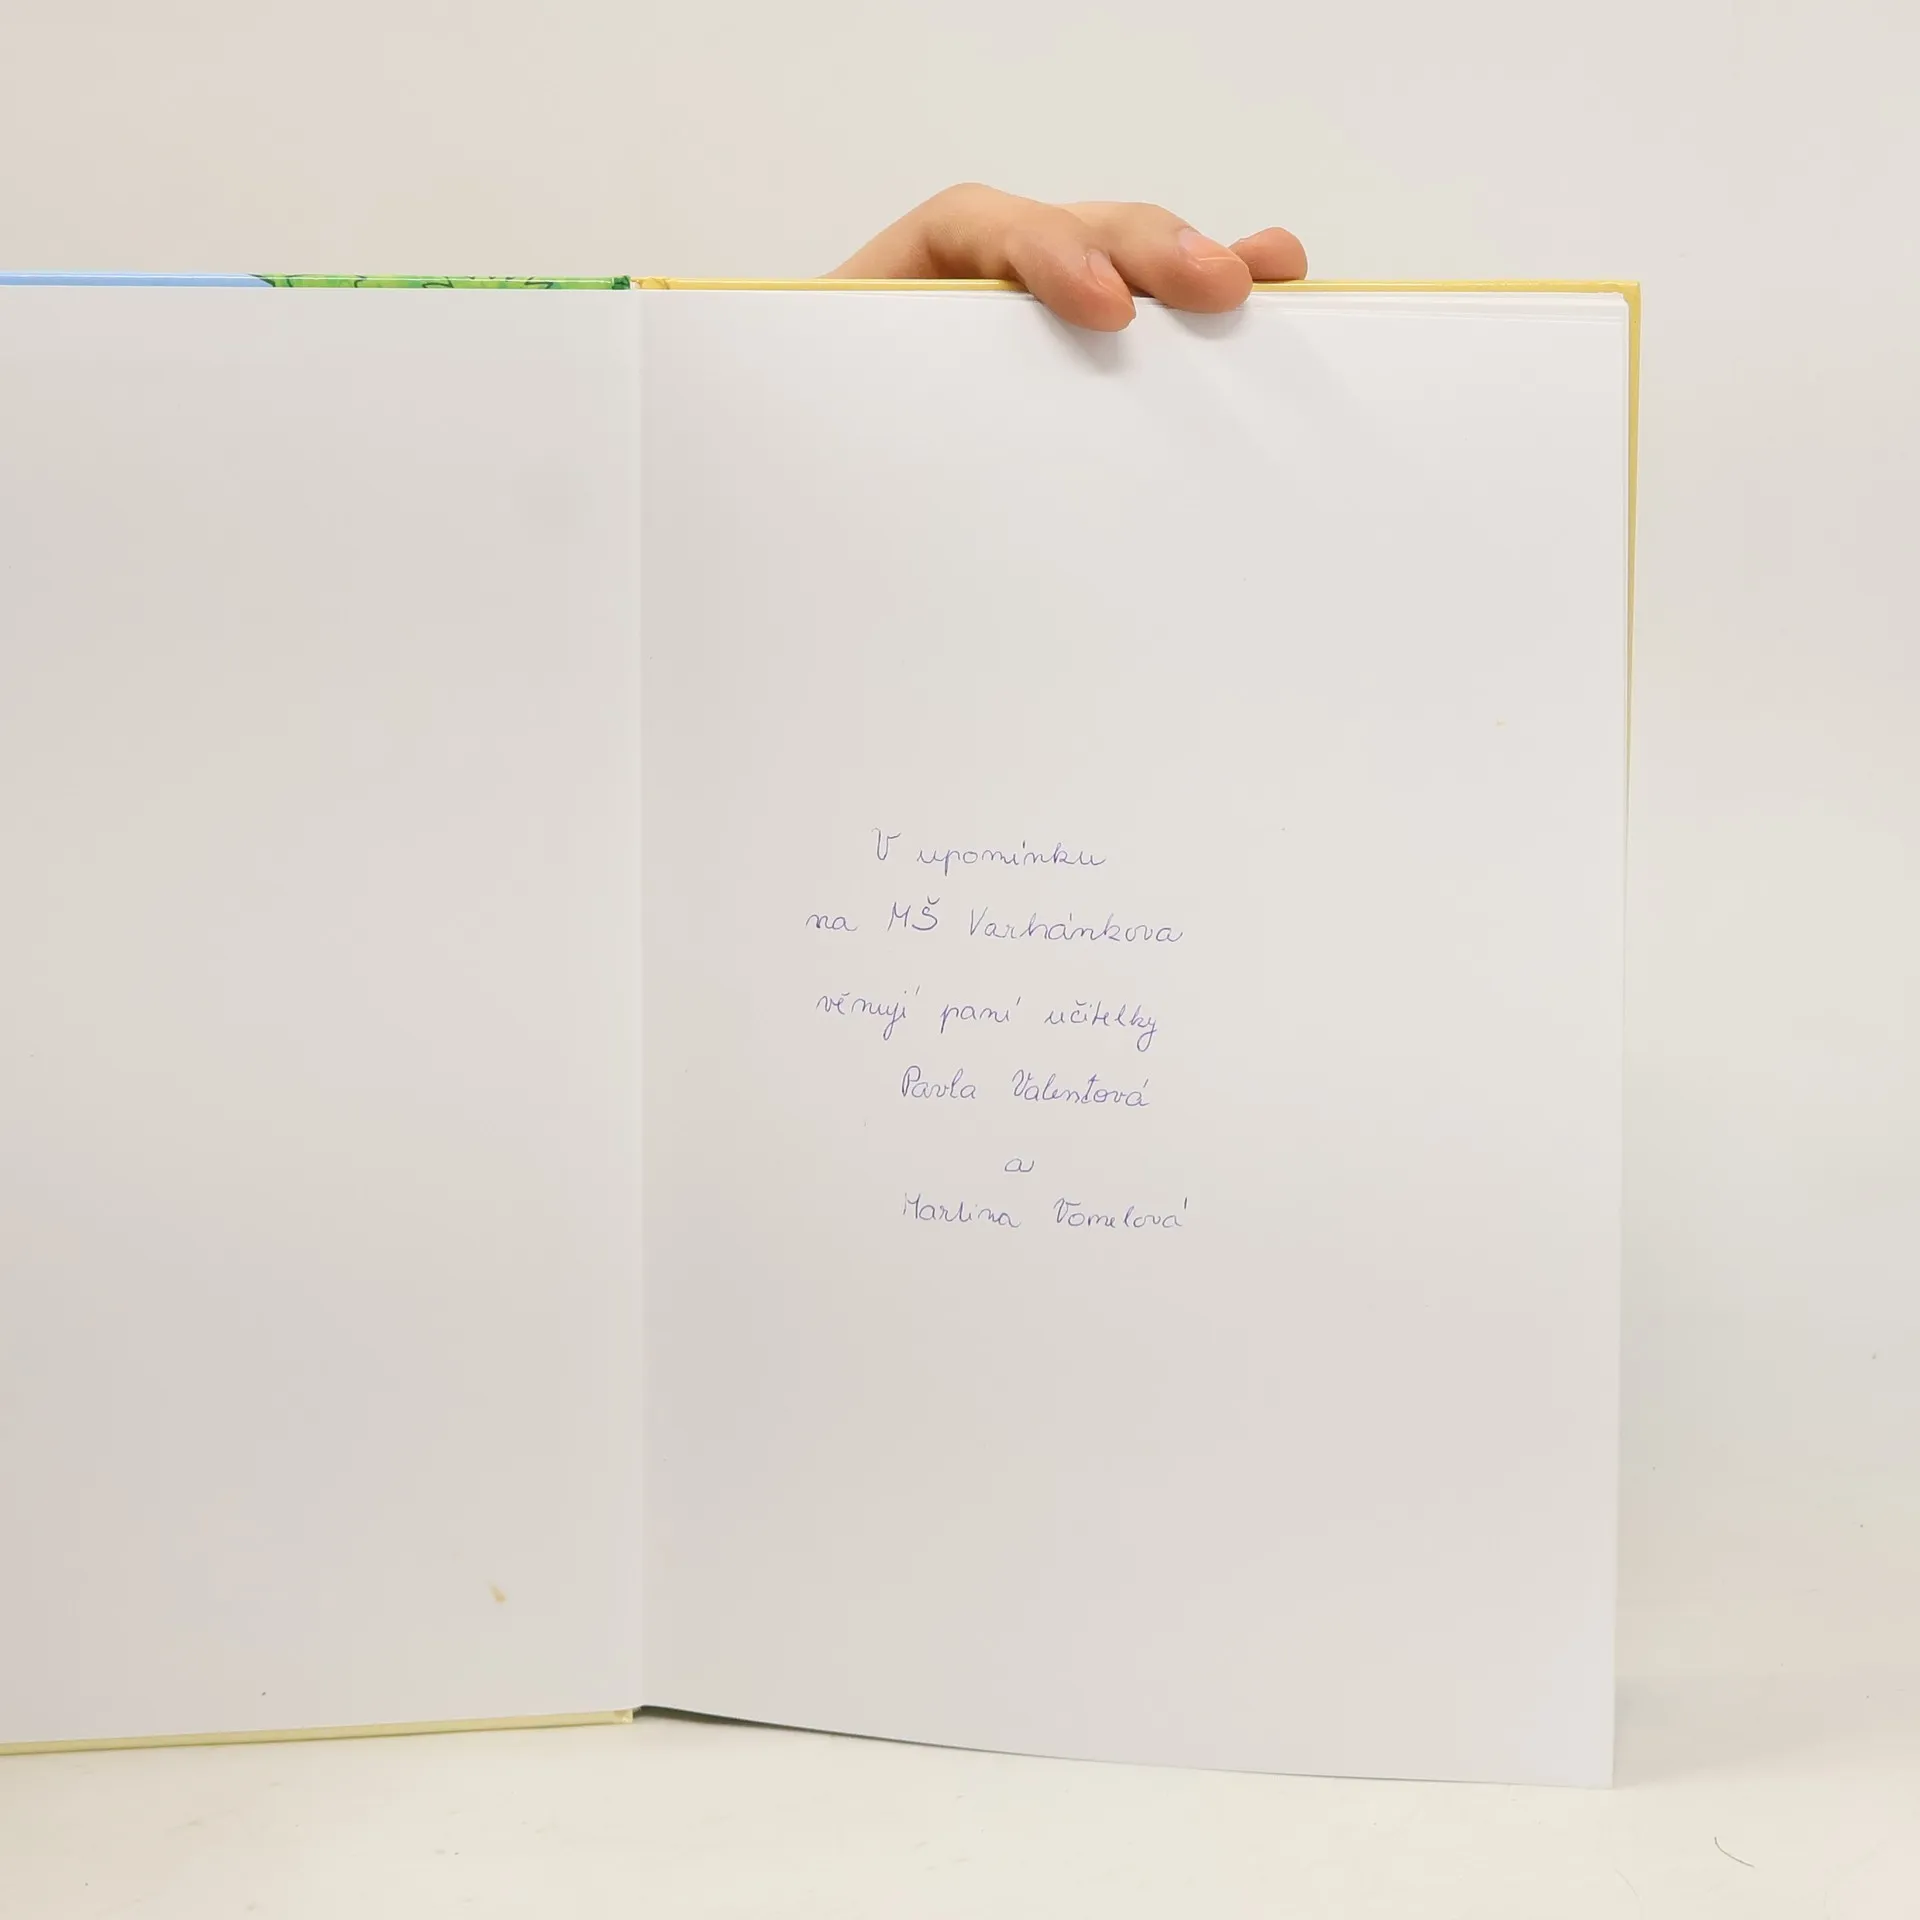 V upomínku
na MŠ Varhánkova
věnují paní učitelky
Pavla Valentová
a
Martina Vomelová